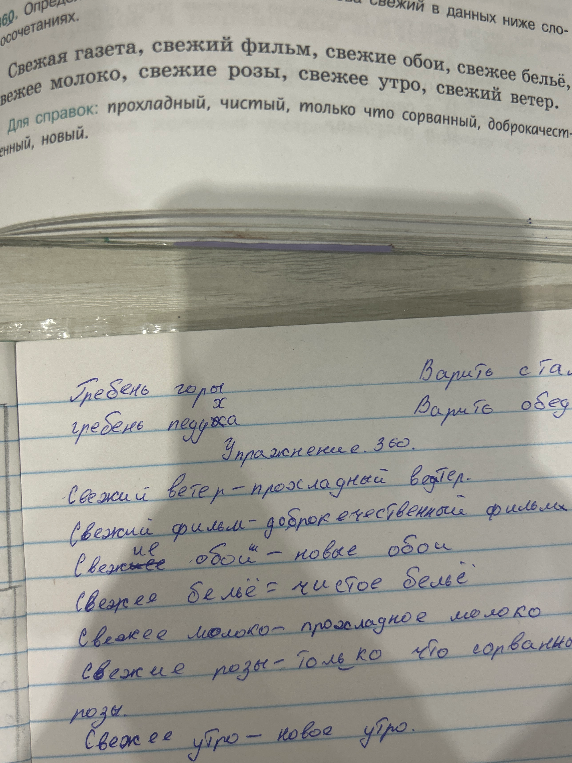 360. Опреде свежий в данных ниже сло-
осочетаниях.
Свежая газета, свежий фильм, свежие обои, свежее бельё,
вежее молоко, свежие розы, свежее утро, свежий ветер.
Для справок: прохладный, чистый, только что сорванный, доброкачест-
енный, новый.
Гребень горы Варить ста
гребень педуха Варить обед
Упражнение. 360.
Свежий ветер – прохладный ветер.
Свежий фильм – доброкечественный фильм
Свежие обои – новые обои
Свежее бельё = чистое бельё
Свежее молоко – прохладное молоко
Свежие розы – только что сорванно
розы.
Свежее утро – новое утро.